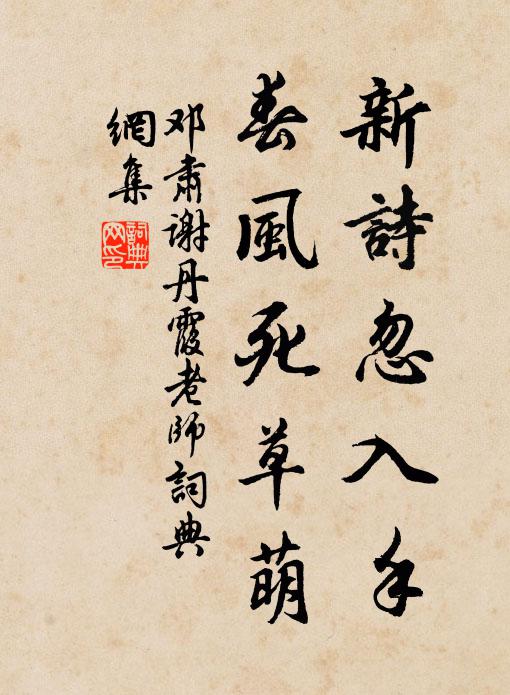 新詩忽入手
春風死草萌
邓肅谢丹霞老師詞典
網集
詞典
网印